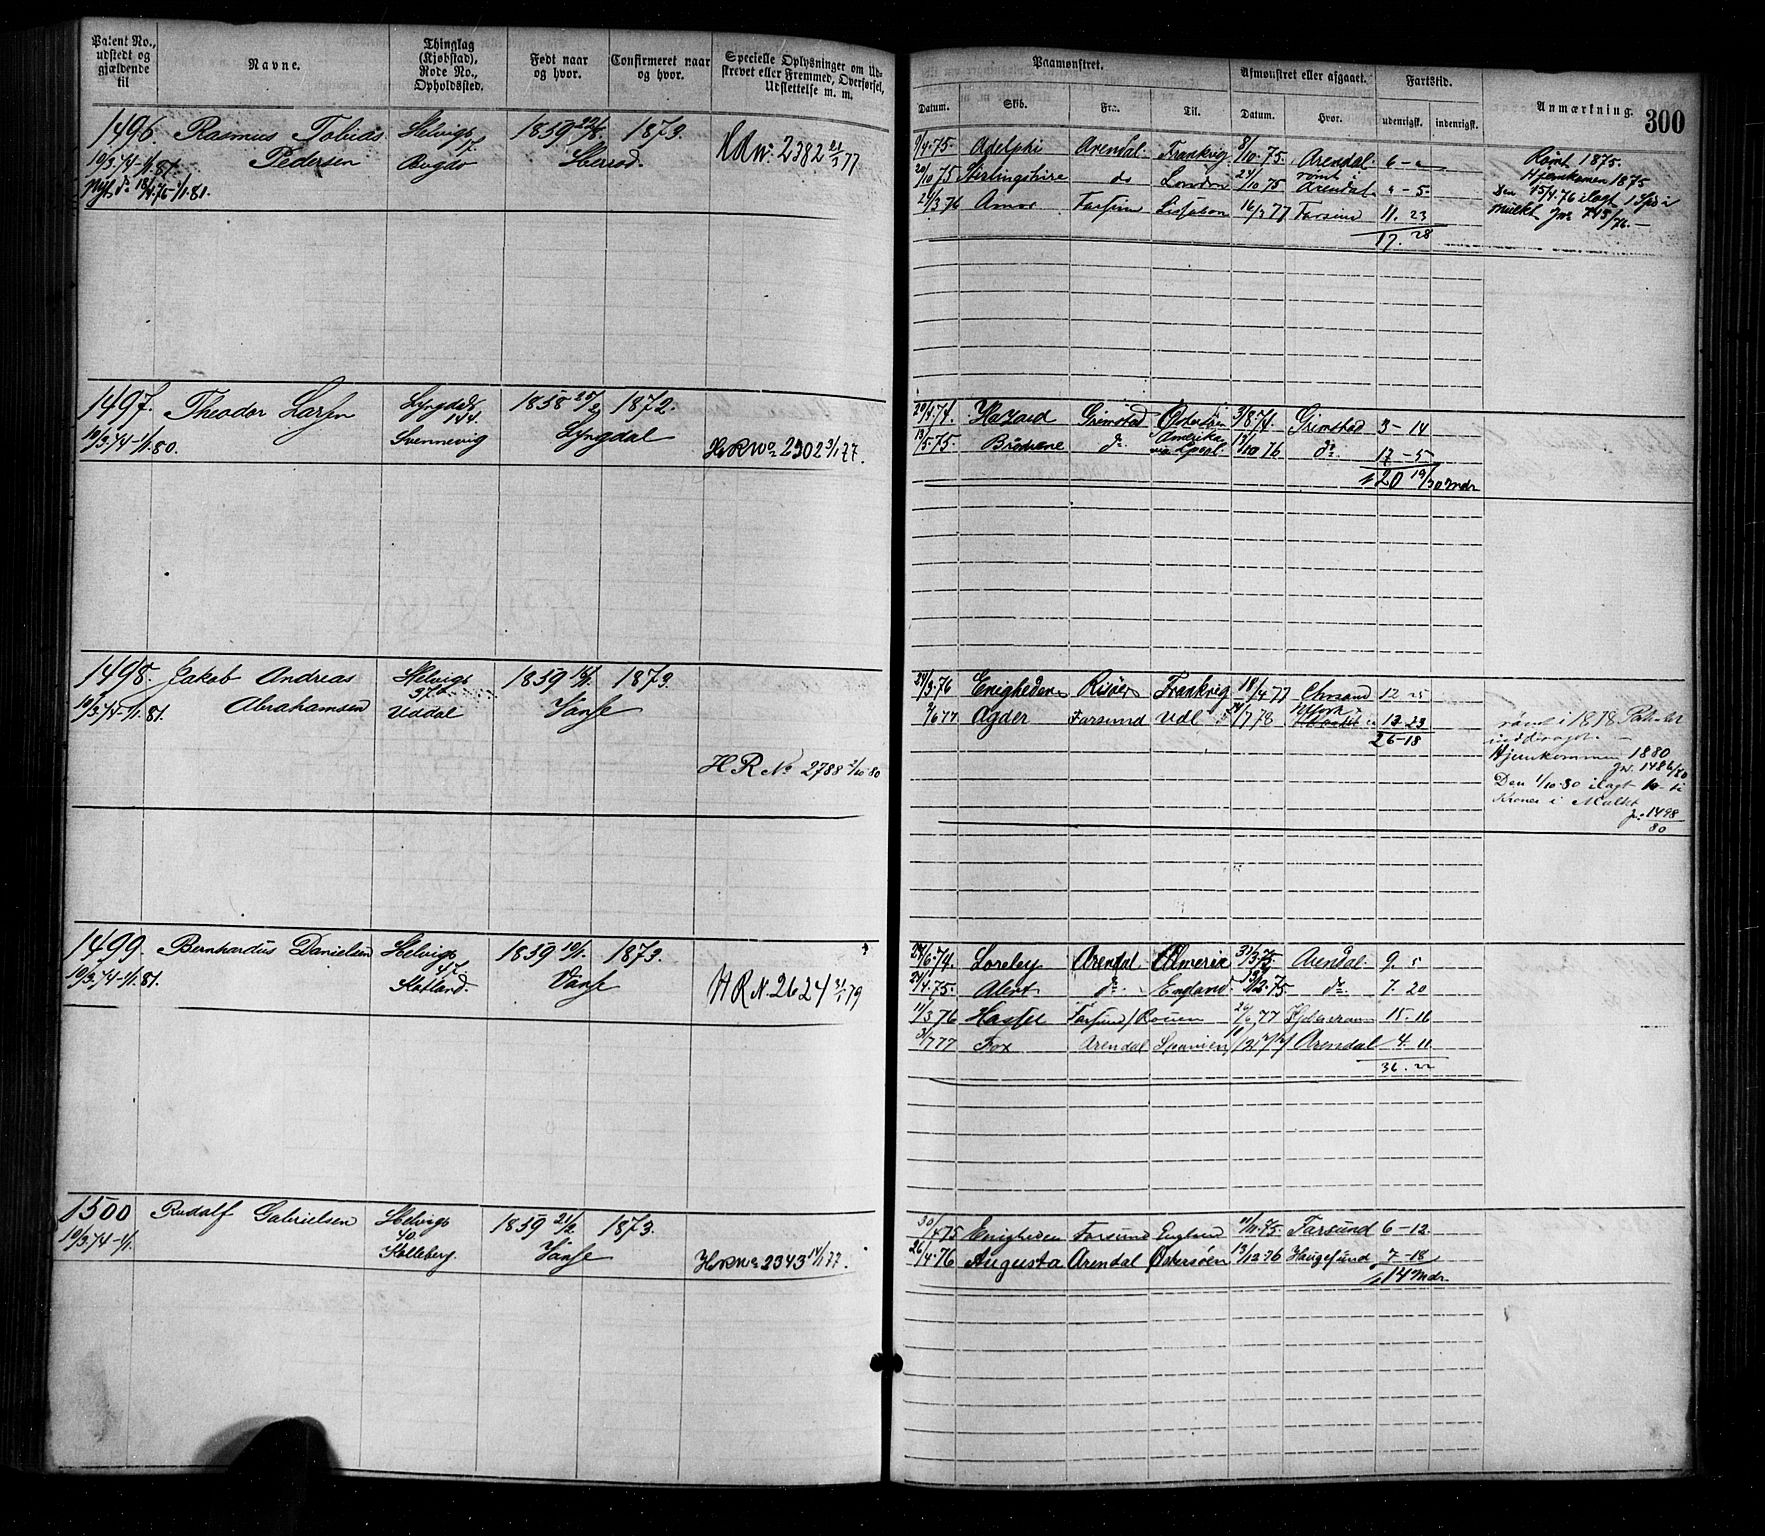 Patent No., udstedt og gjældende til
Navne.
Thinglag (Kjøbstad), Rode No., Opholdssted.
Født naar og hvor.
Confirmeret naar og hvor.
Specielle Oplysninger om Udskrevet eller Fremmed, Overførsel, Udslettelse m. m.
Paamønstret.
Afmønstret eller afgaaet.
Fartstid.
Anmærkning.
300
Datum. Skib. Fra. Til. Datum. Hvor. udenrigsk. indenrigsk.
1496 Rasmus Tobias Helvigs 1859 22/8 1873.
Pedersen 17 Herred.
10/3.74-1/1.81.
18/4.76-1/1.81.
2382 77
9/4.75. Adelphi Arendal. Frankrig 8/10.75. Arendal.
20/10.75 Sterlingshire do London 24/10 75 rømt i Arendal - 5.
21/3.76 Amor Farsund Lissabon 16/3 77 Farsund 11. 23
17. 28
Rømt 1875.
Hjemkommen 1875
Den 15/4.76 ilagt 1 Spd i
Mulkt Jno 745/76.-
1497. Theodor Larsen Lyngdals 1858 25/2 1872.
144. Lyngdal
10/3.74-1/1.80. Svennevig
HRNo 2302 3/1 77.
20/4.74. Hazard Grimstad Østersøen 3/8.74. Grimstad 3 - 14
13/5.75. do Amerika 13/10 76 do 17 - 5
20 19/30 Mdr
1498. Jakob Andreas Helvigs 1859 1873.
Abrahamsen 37b Vanse
10/3.74-1/1.81. Uddal
HRNo 2788 2/10 80
24/3.76 Enigheden Risør Frankrig 18/4.77 Chrsand 12 25
2/6 77 Agder Farsund Udl 7.78 N York 13 23
26-18
rømt i 1878 Patentet
inddraget.
Hjemkommen 1880
Jno. 1486/80
Den 1/10-80 ilagt 10 ti
Kroner i Mulkt
Jno. 1498/80
1499. Bernhardus Danielsen Helvigs 1859 19/1. 1873.
47 Vanse
10/3.74-1/1.81. Skatland
HRN. 2624 21/1 79
24/6.74. Loreley Arendal Almeria 31/3 75. Arendal. 9. 5
24/4.75. Alert do England 75. do 7. 20
11/3.76 Hassel Farsund Rouen 26/6 77 15. 16
3/7 77 Fox Arendal Spanien Arendal 4. 11
36. 22
1500 Rudolf Gabrielsen Helvigs 1859 21/2 1873.
40. Vanse
10/3.74-1/1. Kolleberg.
HRNo 2343 14/1 77.
30/4 75 Enigheden Farsund England 75. Farsund 6-12.
26/4.76 Augusta Arendal Østersøen 13/12.76 Haugesund 7-18
14 Mdr